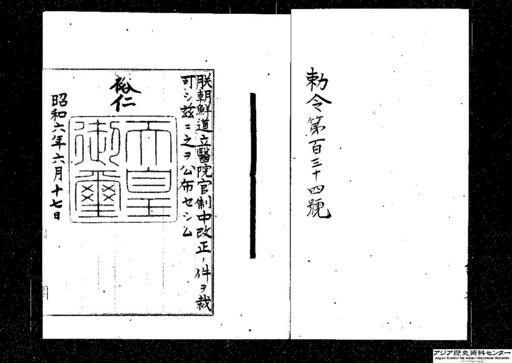 勅令第百三十四號
朕朝鮮道立醫院官制中改正ノ件ヲ裁
可シ茲ニ之ヲ公布セシム
裕仁
天皇
御璽
昭和六年六月十七日
アジア歴史資料センター
Japan Center for Asian Historical Records